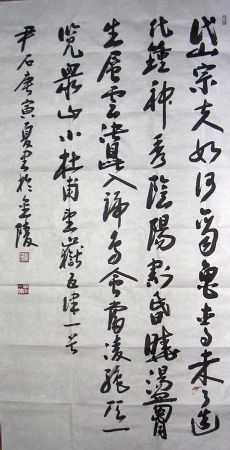 岱宗夫如何齊魯青未了造
化鍾神秀陰陽割昏曉盪胸
生層雲決眥入歸鳥會當凌絕頂一
覽衆山小杜甫望嶽五律一首
尹石庚寅夏書於金陵